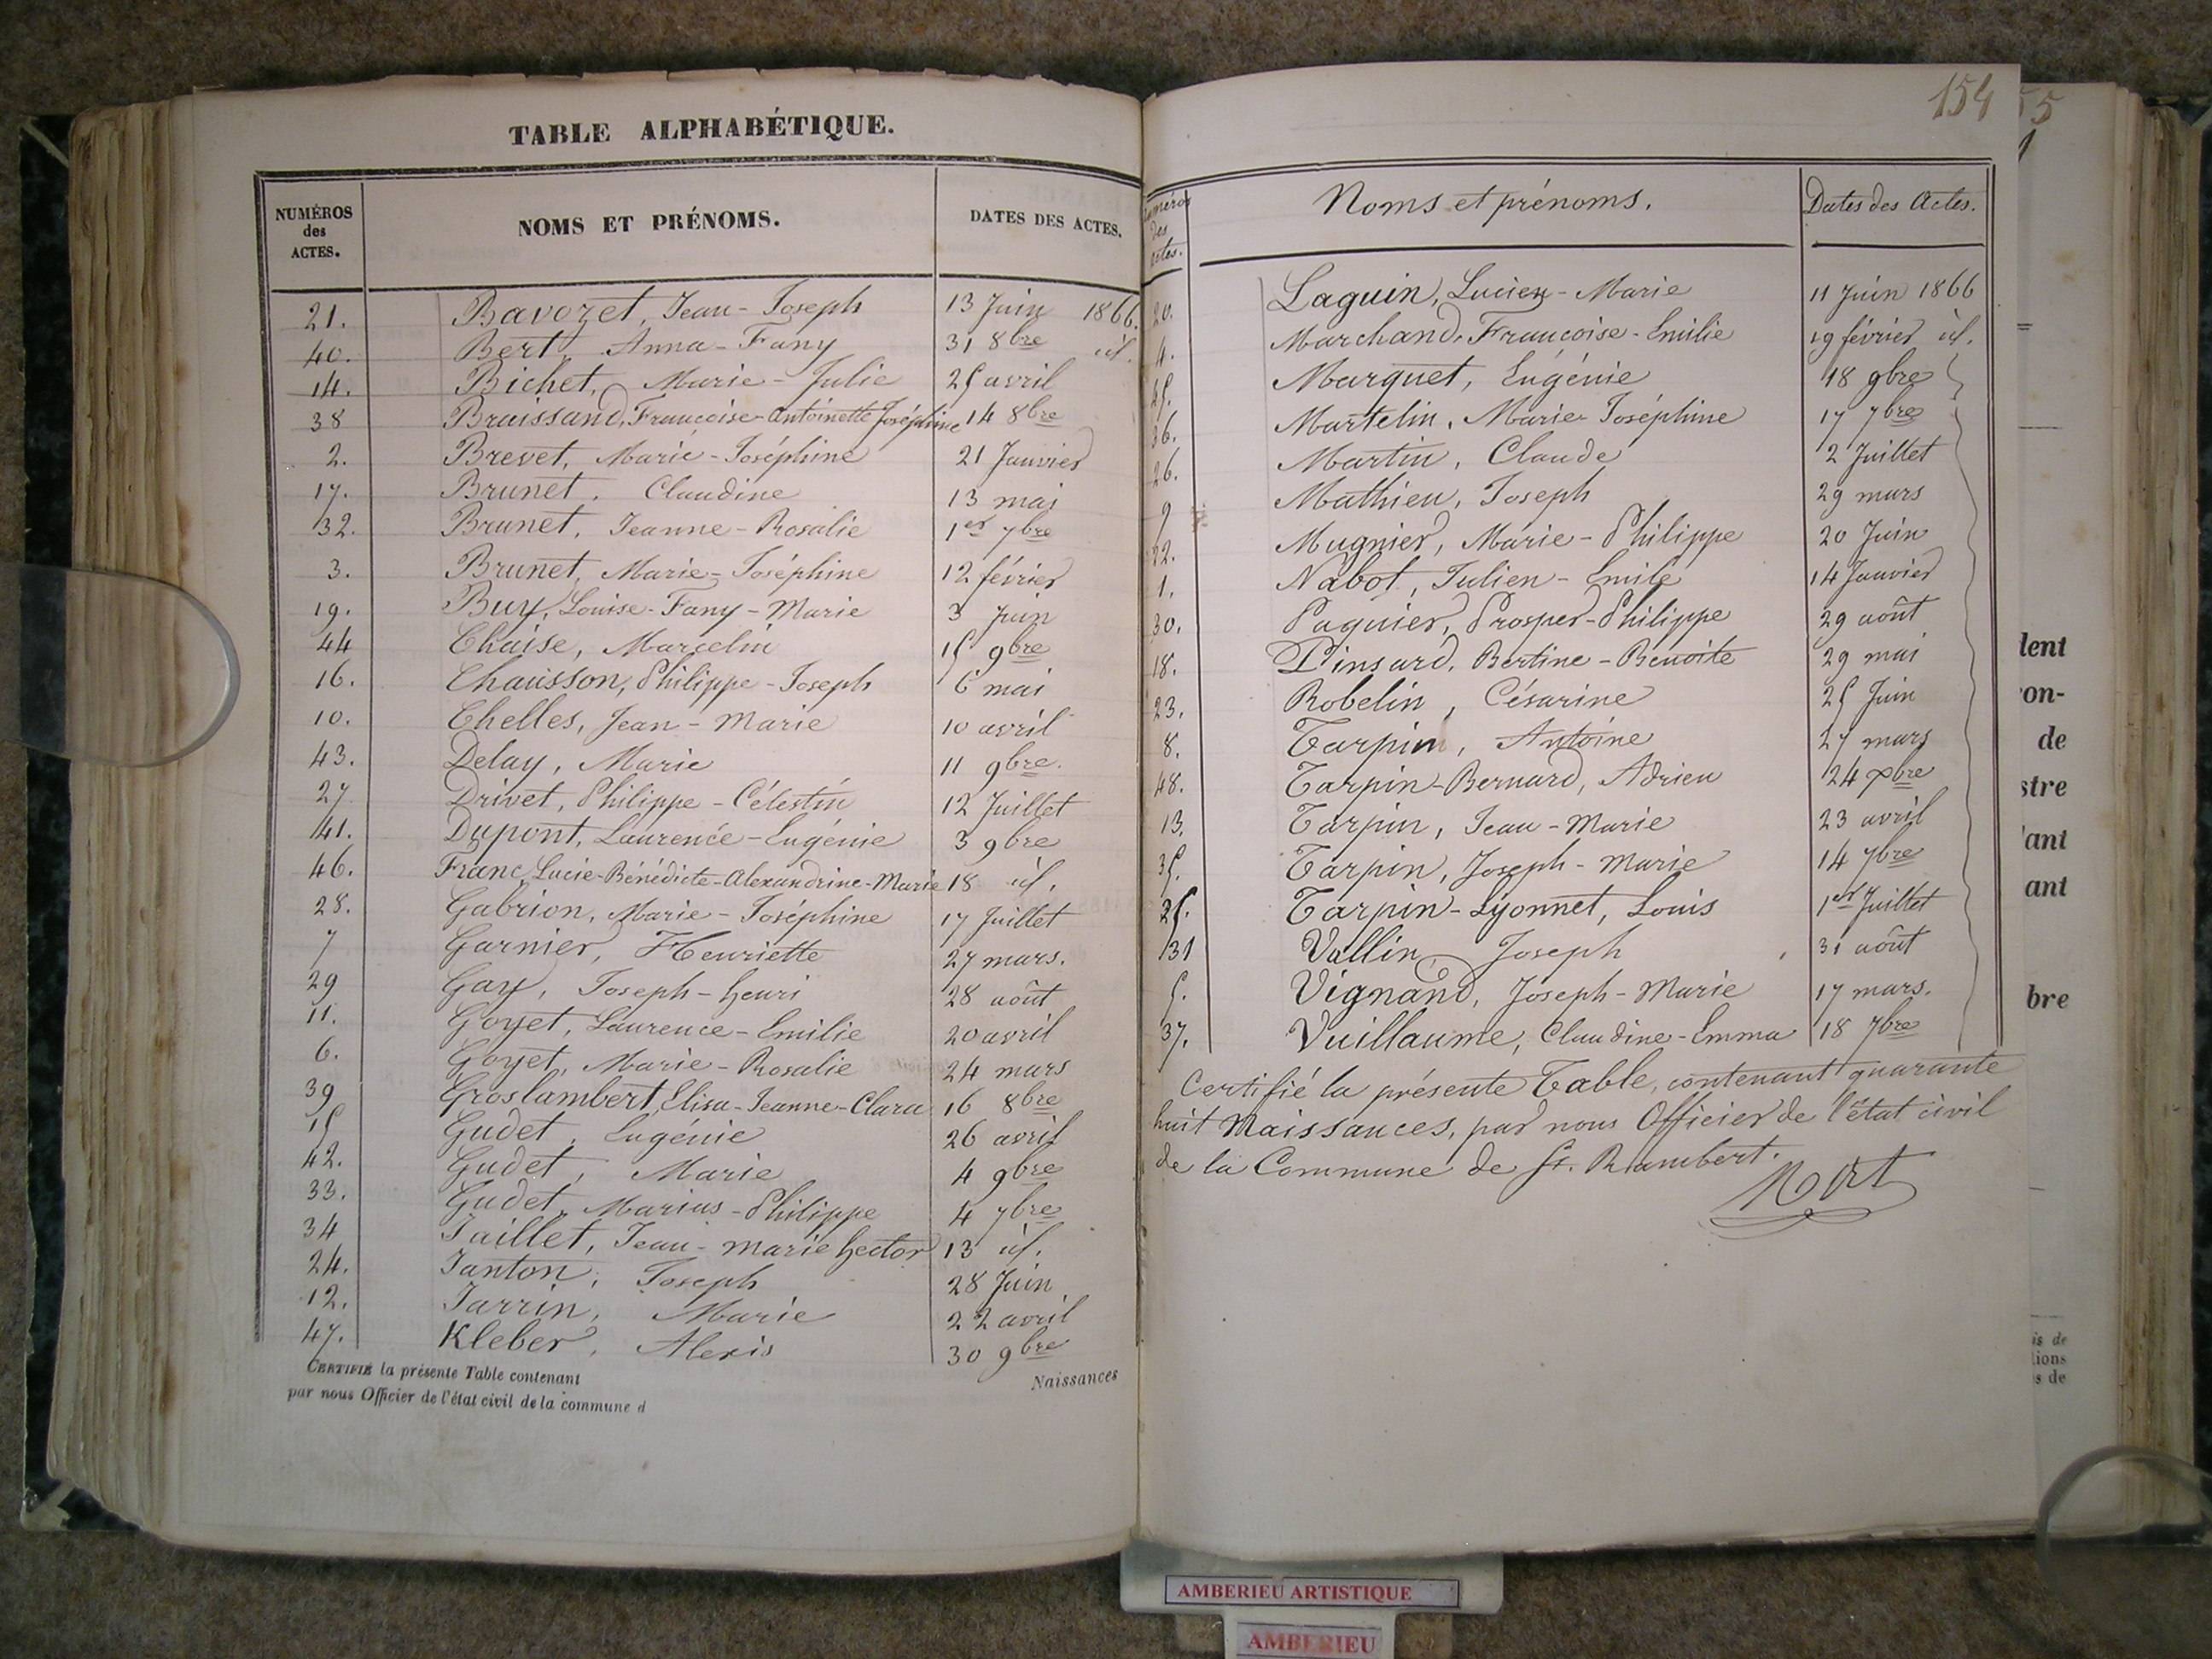 TABLE ALPHABÉTIQUE.
NUMÉROS des ACTES. NOMS ET PRÉNOMS. DATES DES ACTES.
21. Bavozet, Jean-Joseph 13 Juin 1866.
40. Bert, Anna-Fany 31 8bre id.
14. Bichet, Marie-Julie 25 avril
38 Braissand, Françoise-Antoinette Joséphine 14 8bre
2. Brevet, Marie-Joséphine 21 Janvier
17. Brunet, Claudine 13 mai
32. Brunet, Jeanne-Rosalie 1er 7bre
3. Brunet, Marie-Joséphine 12 février
19. Buy, Louise-Fany-Marie 3 Juin
44 Chaise, Marcelin 15 9bre
16. Chausson, Philippe-Joseph 6 mai
10. Chelles, Jean-Marie 10 avril
43. Delay, Marie 11 9bre.
27 Drivet, Philippe-Célestin 12 Juillet
41. Dupont, Laurence-Eugénie 3 9bre
46. Franc, Lucie-Bénédicte-Alexandrine-Marie 18 id.
28. Gabrion, Marie-Joséphine 17 Juillet
7 Garnier, Henriette 27 mars.
29 Gay, Joseph-henri 28 août
11. Goyet, Laurence-Emilie 20 avril
6. Goyet, Marie-Rosalie 24 mars
39 Groslambert, Elisa-Jeanne-Clara 16 8bre
15 Gudet, Eugénie 26 avril
42. Gudet, Marie 4 9bre
33. Gudet, Marius-Philippe 4 7bre
34 Jaillet, Jean-marie hector 13 id.
24. Janton, Joseph 28 Juin
12. Jarrin, Marie 22 avril
47. Kleber, Alexis 30 9bre
CERTIFIÉ la présente Table contenant Naissances
par nous Officier de l'état civil de la commune d
154
Numéros des actes. Noms et prénoms. Dates des Actes.
20. Laguin, Lucien-Marie 11 Juin 1866
4. Marchand, Françoise-Emilie 19 février id.
Marquet, Eugénie 18 9bre
36. Martelin, Marie-Joséphine 17 7bre
26. Martin, Claude 2 Juillet
9 Mathieu, Joseph 29 mars
22. Mugnier, Marie-Philippe 20 Juin
1. Nabot, Julien-Emile 14 Janvier
30. Paguier, Prosper-Philippe 29 août
18. Pinsard, Bertine-Benoite 29 mai
23. Robelin, Césarine 25 Juin
8. Tarpin, Antoine 27 mars
48. Tarpin-Bernard, Adrien 24 xbre
13. Tarpin, Jean-Marie 23 avril
35. Tarpin, Joseph-Marie 14 7bre
25. Tarpin-Lyonnet, Louis 1er Juillet
31 Vallin, Joseph 31 août
5. Vignand, Joseph-Marie 17 mars.
37. Vuillaume, Claudine-Emma 18 7bre
Certifié la présente Table, contenant quarante
huit Naissances, par nous Officier de l'état civil
de la Commune de St. Rambert.
55
lent
on-
de
stre
ant
ant
bre
is de
tions
s de
AMBERIEU ARTISTIQUE
AMBERIEU